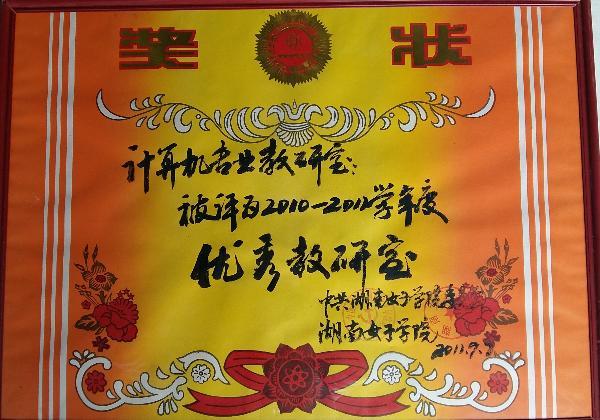 奖状
计算机专业教研室:
被评为2010—2011学年度
优秀教研室
中共湖南女子学院委
湖南女子学院
2011.9.